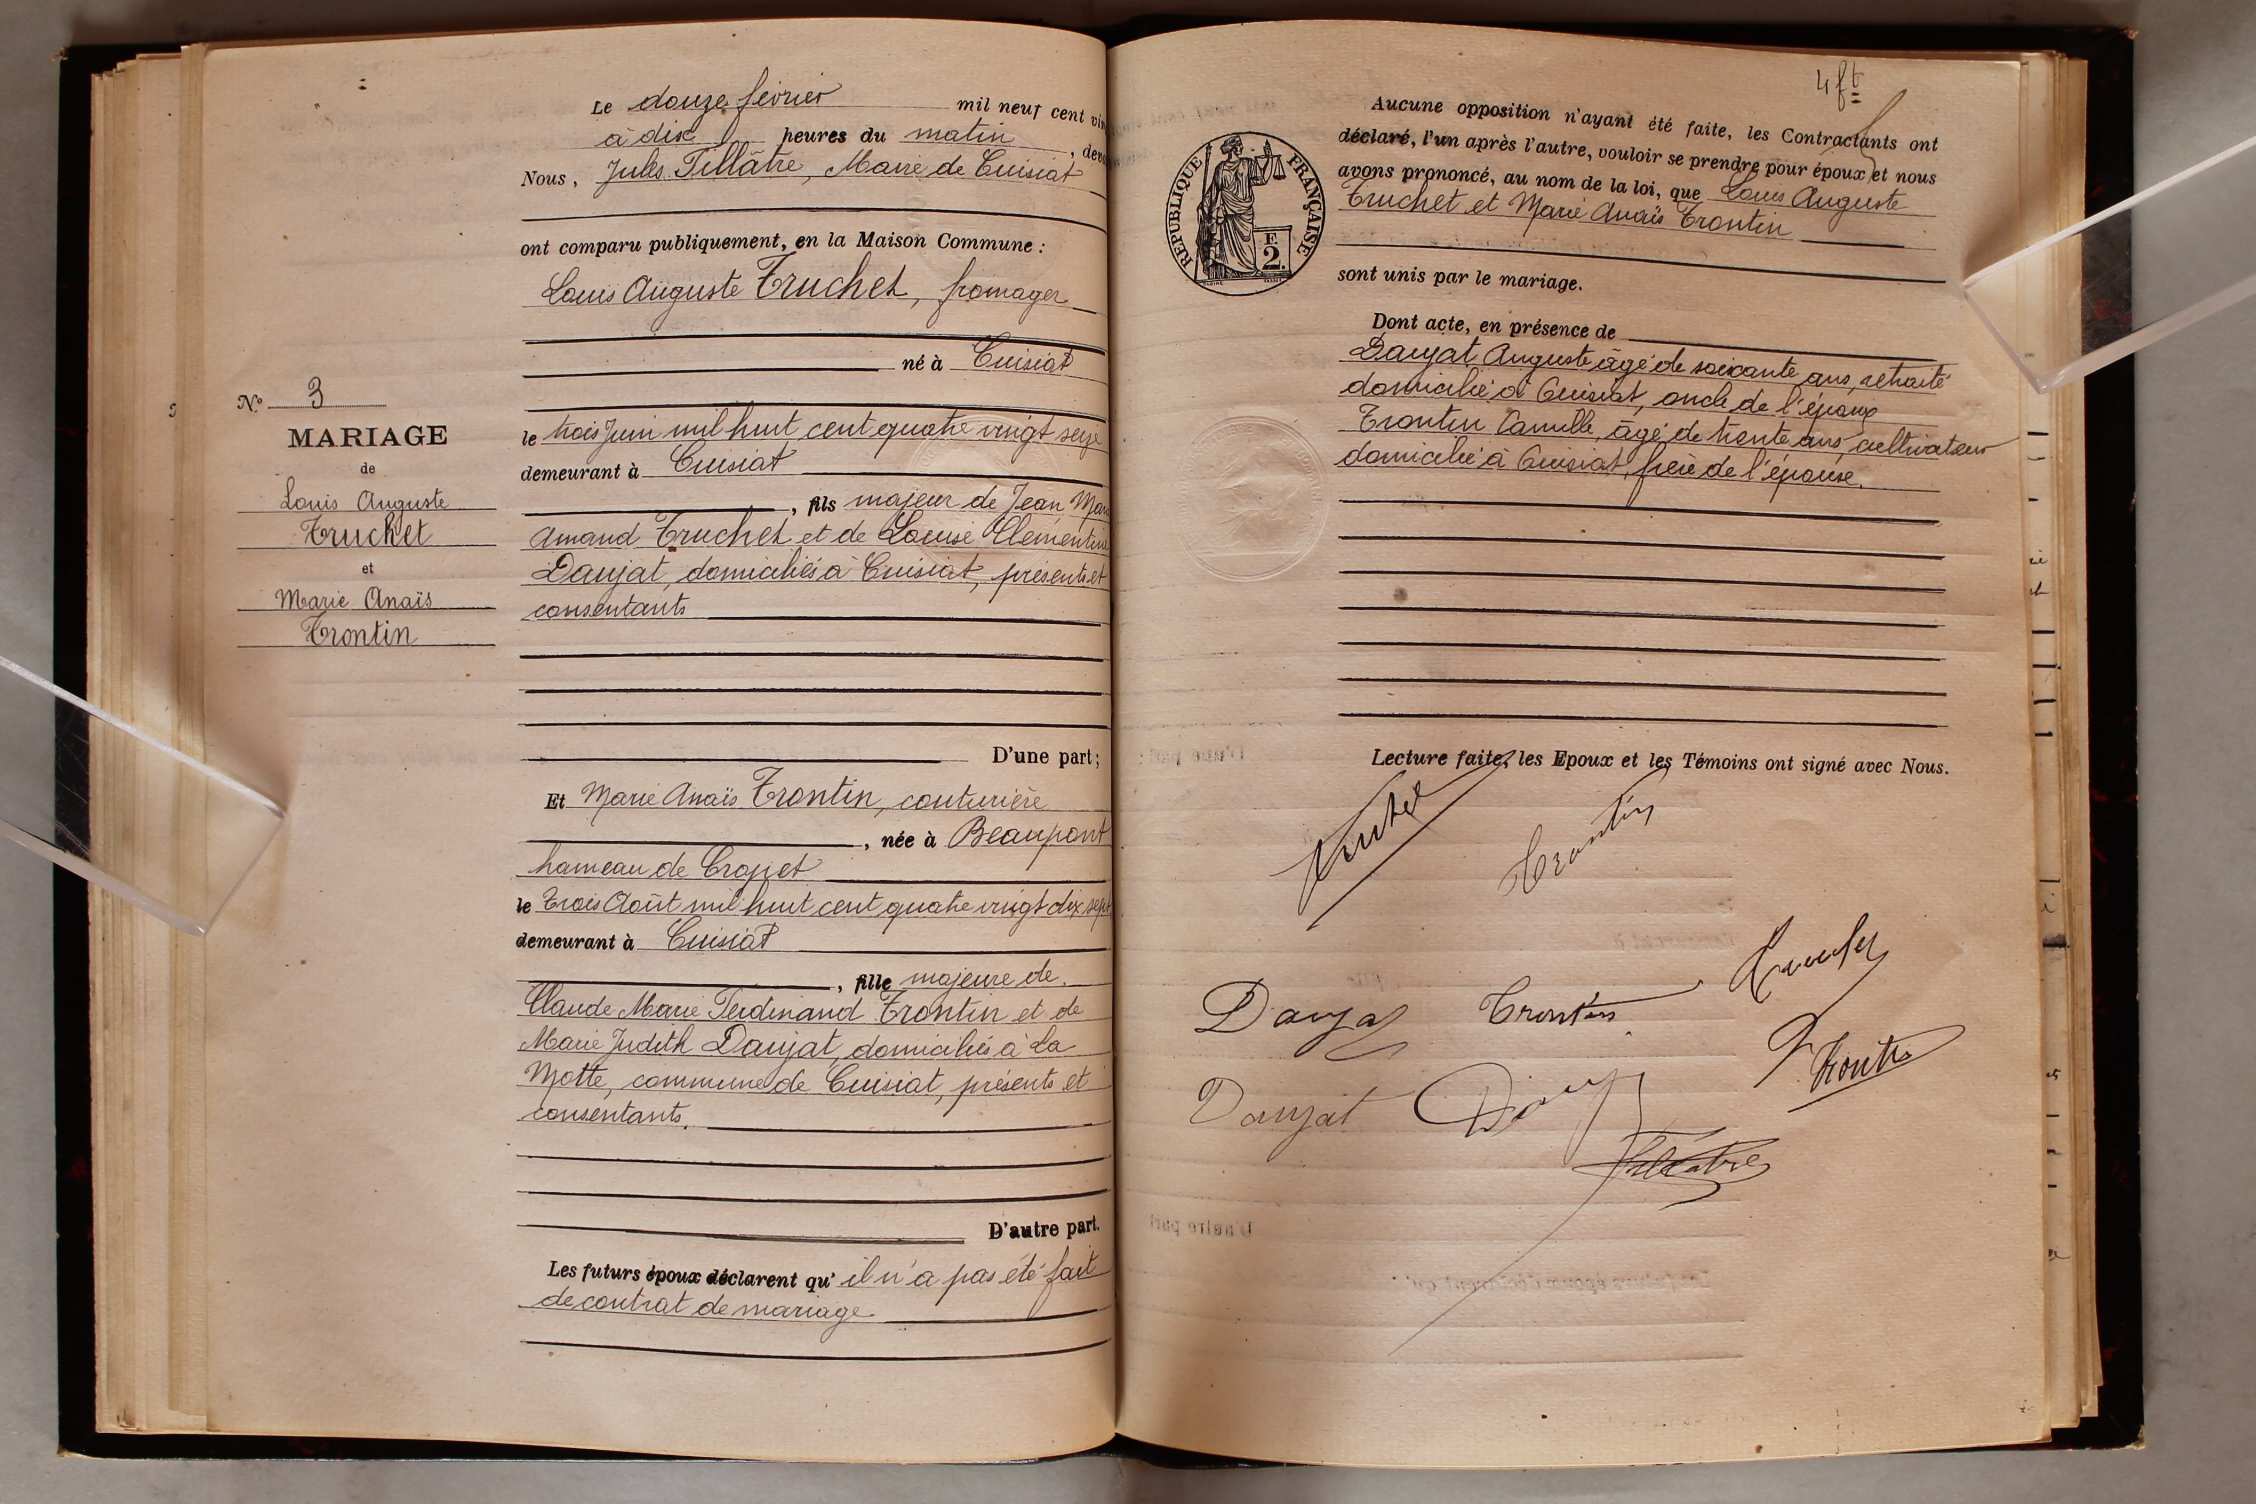 Le douze février mil neuf cent vin
à dix heures du matin, deva
Nous, Jules Tillâtre, Maire de Cuisiat
ont comparu publiquement, en la Maison Commune :
Louis Auguste Truchet, fromager
né à Cuisiat
le trois Juin mil huit cent quatre vingt seize
demeurant à Cuisiat
, fils majeur de Jean Mar
Amand Truchet et de Louise Clémentine
Daujat, domiciliés à Cuisiat, présents et
consentants
D'une part ;
Nº 3
MARIAGE
de
Louis Auguste
Truchet
et
Marie Anaïs
Trontin
Et Marie Anaïs Trontin, couturière
, née à Beaupont
hameau de Cropet
le Trois Août mil huit cent quatre vingt dix sept
demeurant à Cuisiat
, fille majeure de
Claude Marie Ferdinand Trontin et de
Marie Judith Daujat, domiciliés à La
Motte, commune de Cuisiat, présents et
consentants.
D'autre part.
Les futurs époux déclarent qu' il n'a pas été fait
de contrat de mariage
4 ft
RÉPUBLIQUE FRANÇAISE
F.
2.
Aucune opposition n'ayant été faite, les Contractants ont
déclaré, l'un après l'autre, vouloir se prendre pour époux et nous
avons prononcé, au nom de la loi, que Louis Auguste
Truchet et Marie Anaïs Trontin
sont unis par le mariage.
Dont acte, en présence de
Daujat Auguste âgé de soixante ans, retraité
domicilié à Cuisiat, oncle de l'époux
Trontin Camille, âgé de trente ans, cultivateur
domicilié à Cuisiat, frère de l'épouse.
Lecture faite, les Epoux et les Témoins ont signé avec Nous.
Truchet
Trontin
Truchet
Daujat
Trontin
Trontin
Daujat
Tillâtre